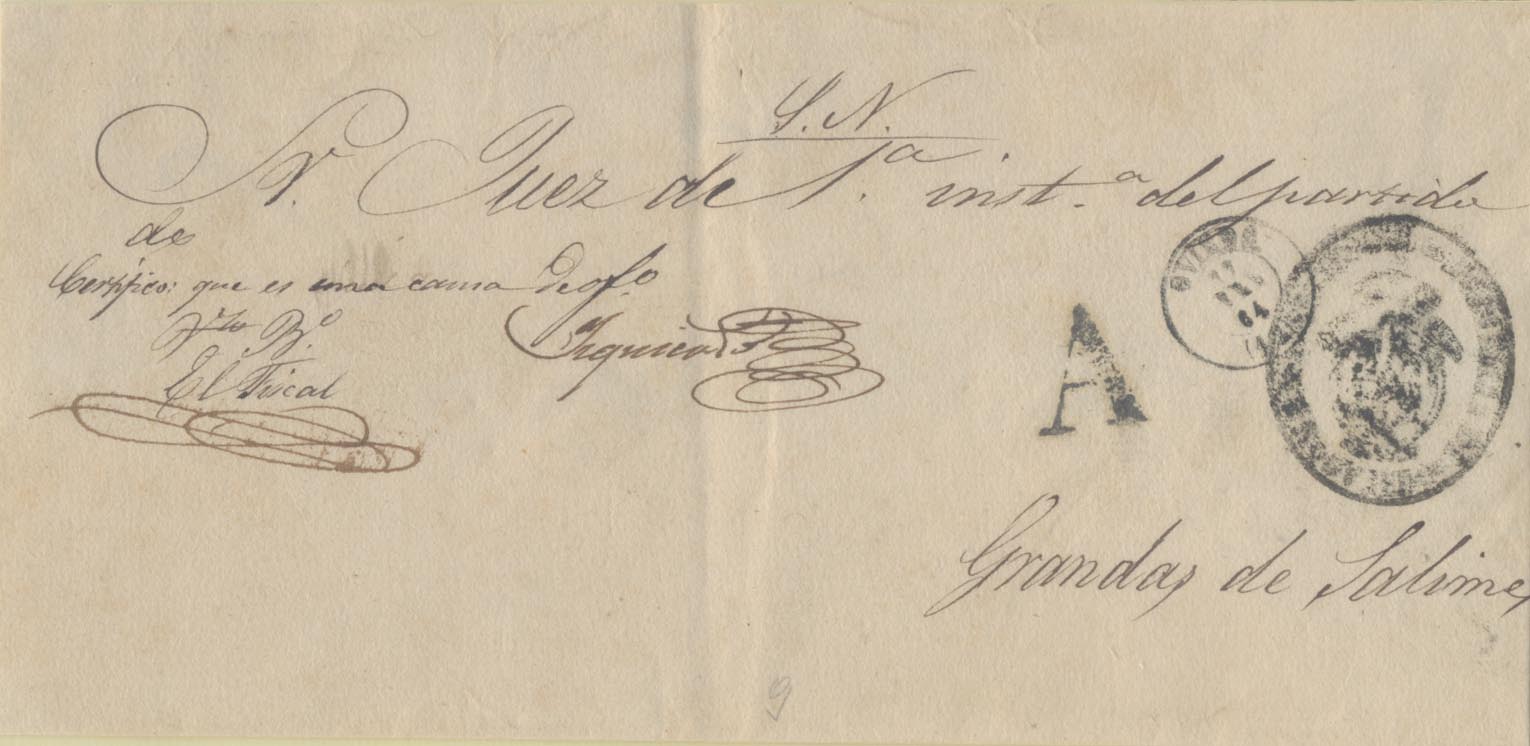 S. N.
Sr. Juez de 1.ª inst.ª del partido
de
Certifico: que es una causa de ofo.
Vto. B.º
El Fiscal
A
OVIEDO
64
Grandas de Salime
9